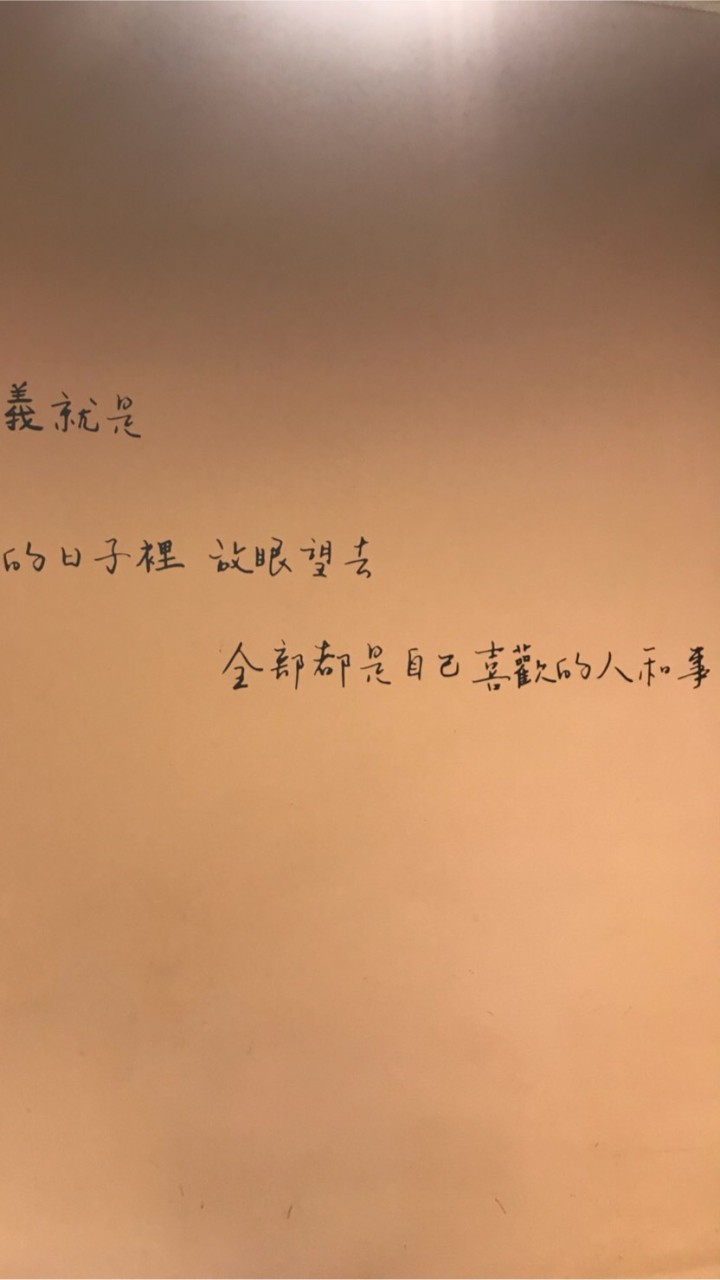 義就是
的日子裡 放眼望去
全部都是自己喜歡的人和事